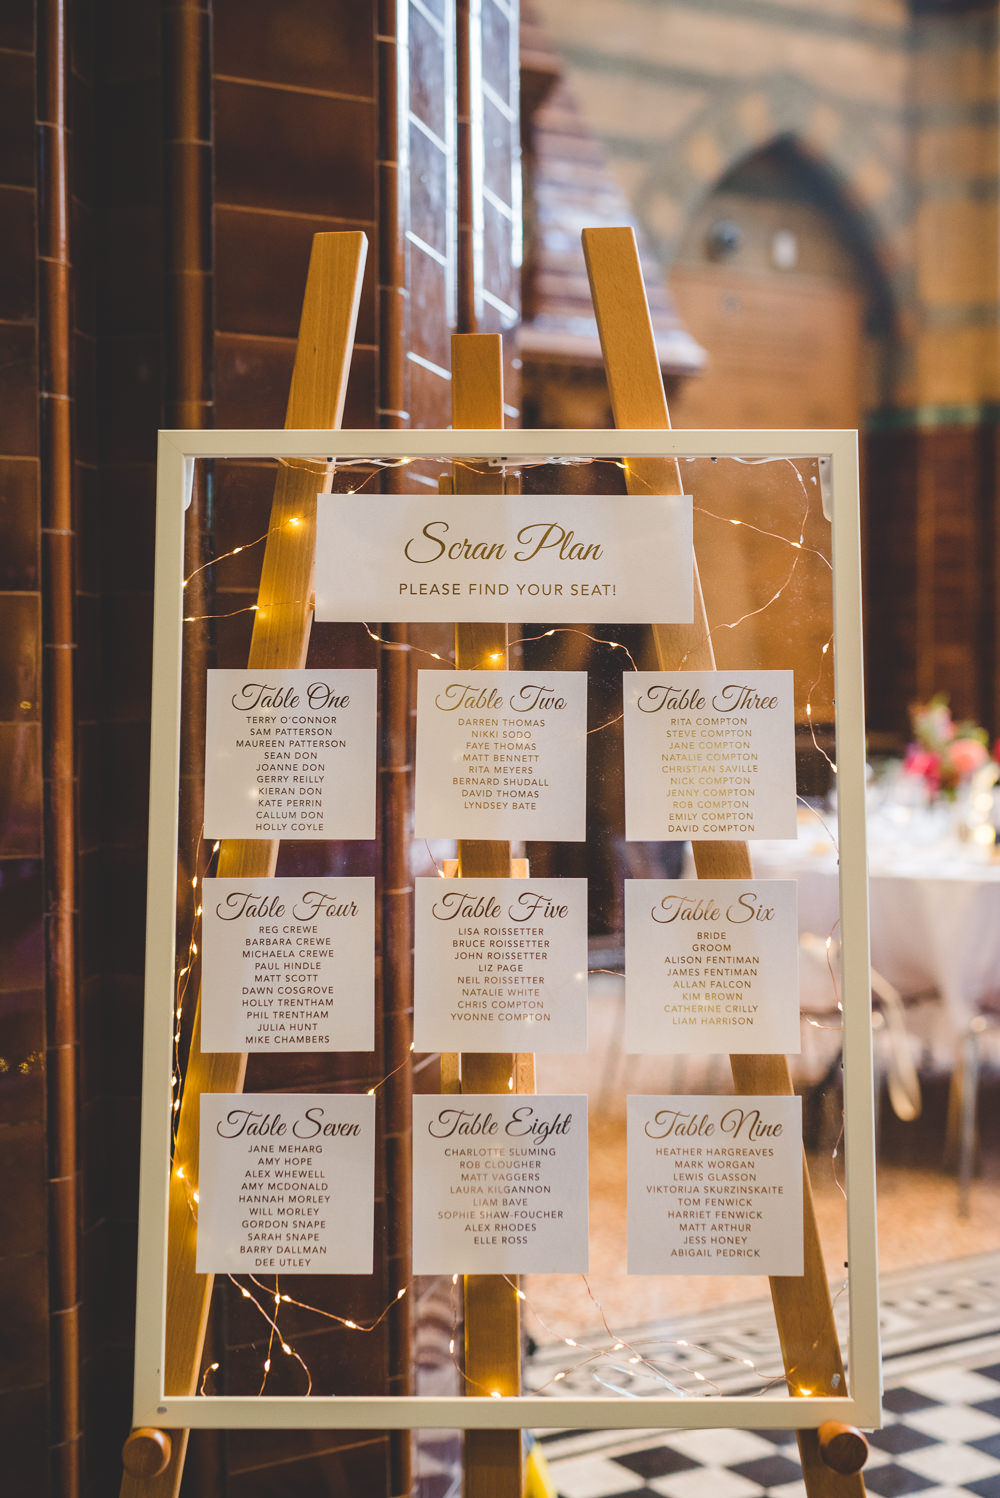 Scran Plan
PLEASE FIND YOUR SEAT!
Table One
TERRY O'CONNOR
SAM PATTERSON
MAUREEN PATTERSON
SEAN DON
JOANNE DON
GERRY REILLY
KIERAN DON
KATE PERRIN
CALLUM DON
HOLLY COYLE
Table Two
DARREN THOMAS
NIKKI SODO
FAYE THOMAS
MATT BENNETT
RITA MEYERS
BERNARD SHUDALL
DAVID THOMAS
LYNDSEY BATE
Table Three
RITA COMPTON
STEVE COMPTON
JANE COMPTON
NATALIE COMPTON
CHRISTIAN SAVILLE
NICK COMPTON
JENNY COMPTON
ROB COMPTON
EMILY COMPTON
DAVID COMPTON
Table Four
REG CREWE
BARBARA CREWE
MICHAELA CREWE
PAUL HINDLE
MATT SCOTT
DAWN COSGROVE
HOLLY TRENTHAM
PHIL TRENTHAM
JULIA HUNT
MIKE CHAMBERS
Table Five
LISA ROISSETTER
BRUCE ROISSETTER
JOHN ROISSETTER
LIZ PAGE
NEIL ROISSETTER
NATALIE WHITE
CHRIS COMPTON
YVONNE COMPTON
Table Six
BRIDE
GROOM
ALISON FENTIMAN
JAMES FENTIMAN
ALLAN FALCON
KIM BROWN
CATHERINE CRILLY
LIAM HARRISON
Table Seven
JANE MEHARG
AMY HOPE
ALEX WHEWELL
AMY MCDONALD
HANNAH MORLEY
WILL MORLEY
GORDON SNAPE
SARAH SNAPE
BARRY DALLMAN
DEE UTLEY
Table Eight
CHARLOTTE SLUMING
ROB CLOUGHER
MATT VAGGERS
LAURA KILGANNON
LIAM BAVE
SOPHIE SHAW-FOUCHER
ALEX RHODES
ELLE ROSS
Table Nine
HEATHER HARGREAVES
MARK WORGAN
LEWIS GLASSON
VIKTORIJA SKURZINSKAITE
TOM FENWICK
HARRIET FENWICK
MATT ARTHUR
JESS HONEY
ABIGAIL PEDRICK